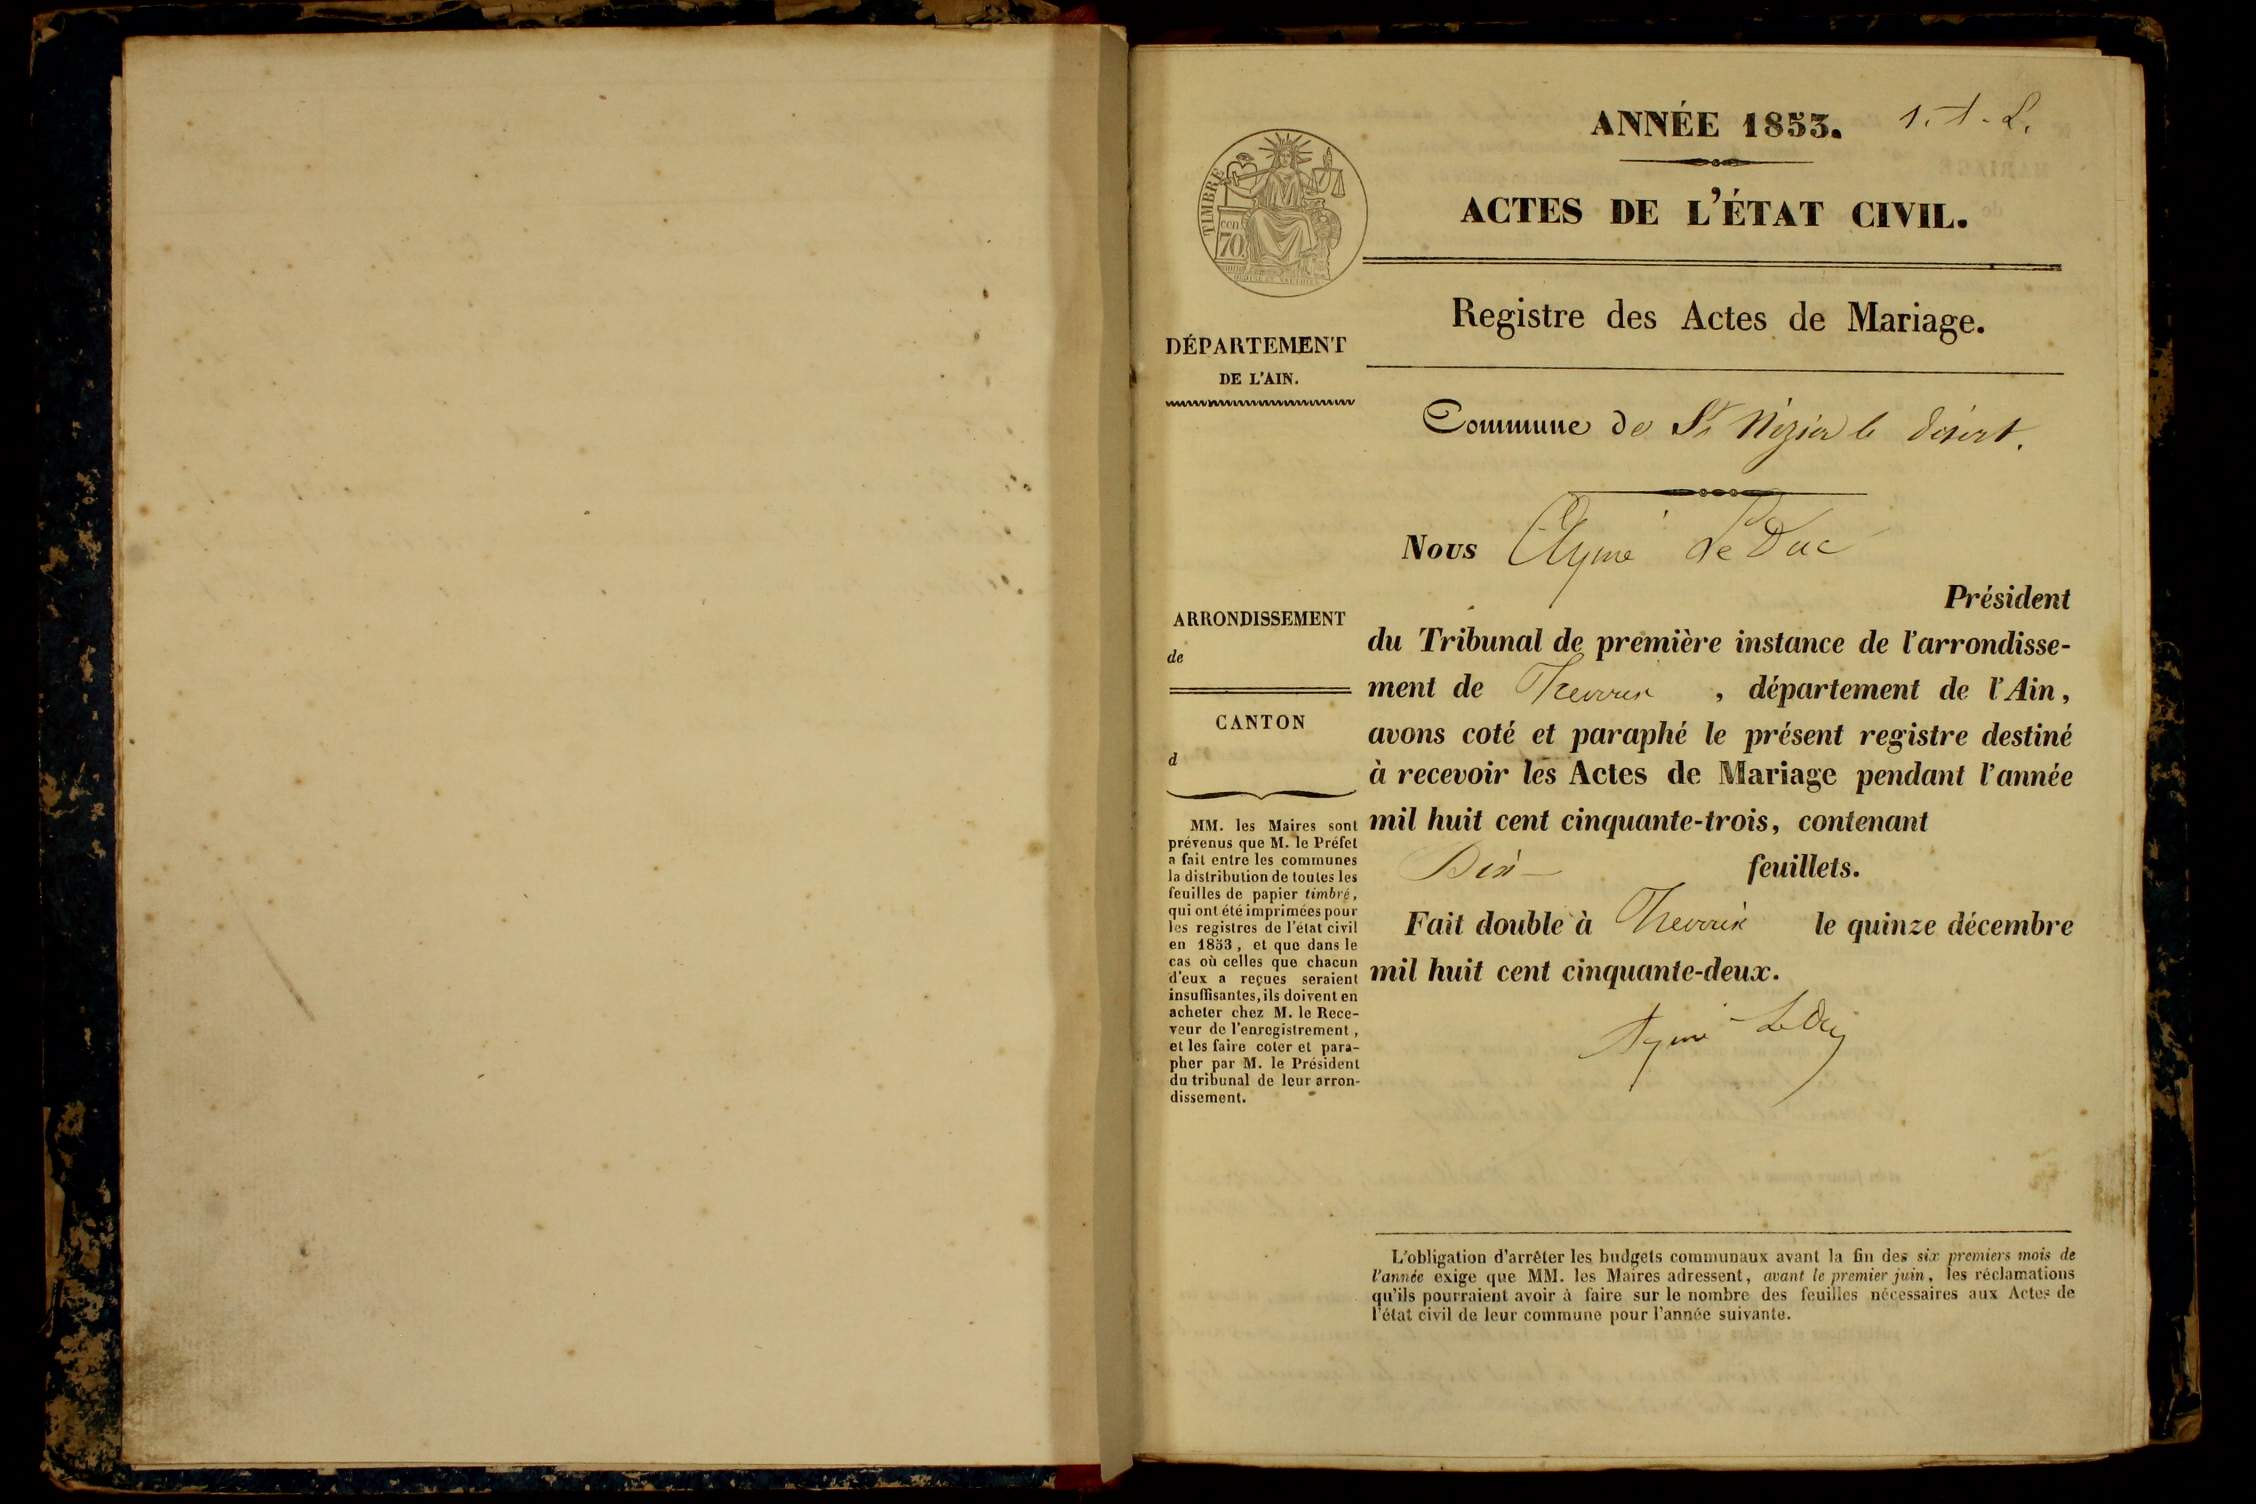 ANNÉE 1853.
ACTES DE L'ÉTAT CIVIL.
TIMBRE
cen
70
Registre des Actes de Mariage.
DÉPARTEMENT
DE L'AIN.
Commune de St Nizier le désert.
Nous Aymé Le Duc
Président
ARRONDISSEMENT
de
du Tribunal de première instance de l'arrondisse-
ment de Trevoux , département de l'Ain,
CANTON
d
avons coté et paraphé le présent registre destiné
à recevoir les Actes de Mariage pendant l'année
mil huit cent cinquante-trois, contenant
Dix feuillets.
Fait double à Trevoux le quinze décembre
mil huit cent cinquante-deux.
Aymé Le Duc
MM. les Maires sont
prévenus que M. le Préfet
a fait entre les communes
la distribution de toutes les
feuilles de papier timbré,
qui ont été imprimées pour
les registres de l'état civil
en 1853, et que dans le
cas où celles que chacun
d'eux a reçues seraient
insuffisantes, ils doivent en
acheter chez M. le Rece-
veur de l'enregistrement,
et les faire coter et para-
pher par M. le Président
du tribunal de leur arron-
dissement.
L'obligation d'arrêter les budgets communaux avant la fin des six premiers mois de
l'année exige que MM. les Maires adressent, avant le premier juin, les réclamations
qu'ils pourraient avoir à faire sur le nombre des feuilles nécessaires aux Actes de
l'état civil de leur commune pour l'année suivante.